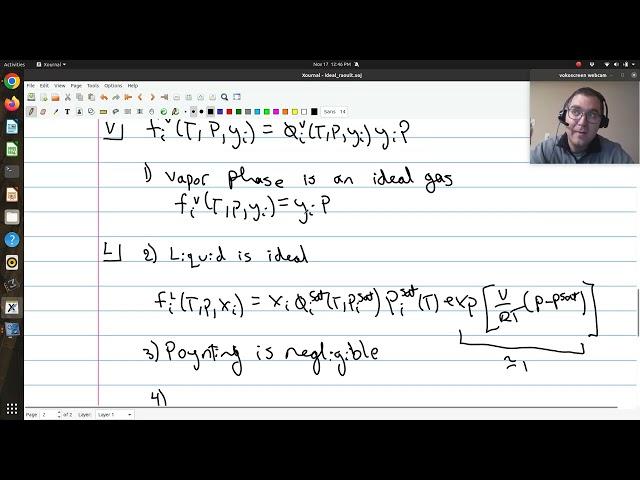 Activities
Xournal
Nov 17 12:46 PM
Xournal - ideal_raoult.xoj
vokoscreen webcam
File Edit View Journal Tools Options Help
Sans 14
V f_i^v(T,P,y_i) = φ_i^v(T,P,y_i) y_i P
1) vapor phase is an ideal gas
f_i^v(T,P,y_i) = y_i P
L 2) Liquid is ideal
f_i^L(T,P,x_i) = x_i φ_i^sat(T,P_i^sat) P_i^sat(T) exp[V/RT (P-P^sat)]
≈ 1
3) Poynting is negligible
4)
Page 2 of 2 Layer: Layer 1